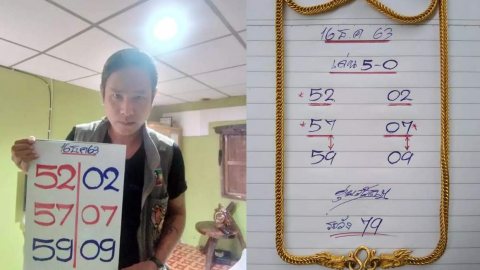 16ธค63
52 02
57 07
59 09
16 ธ.ค 63
เด่น 5-0
*52 02
*57 07*
59 09
ระวัง 79